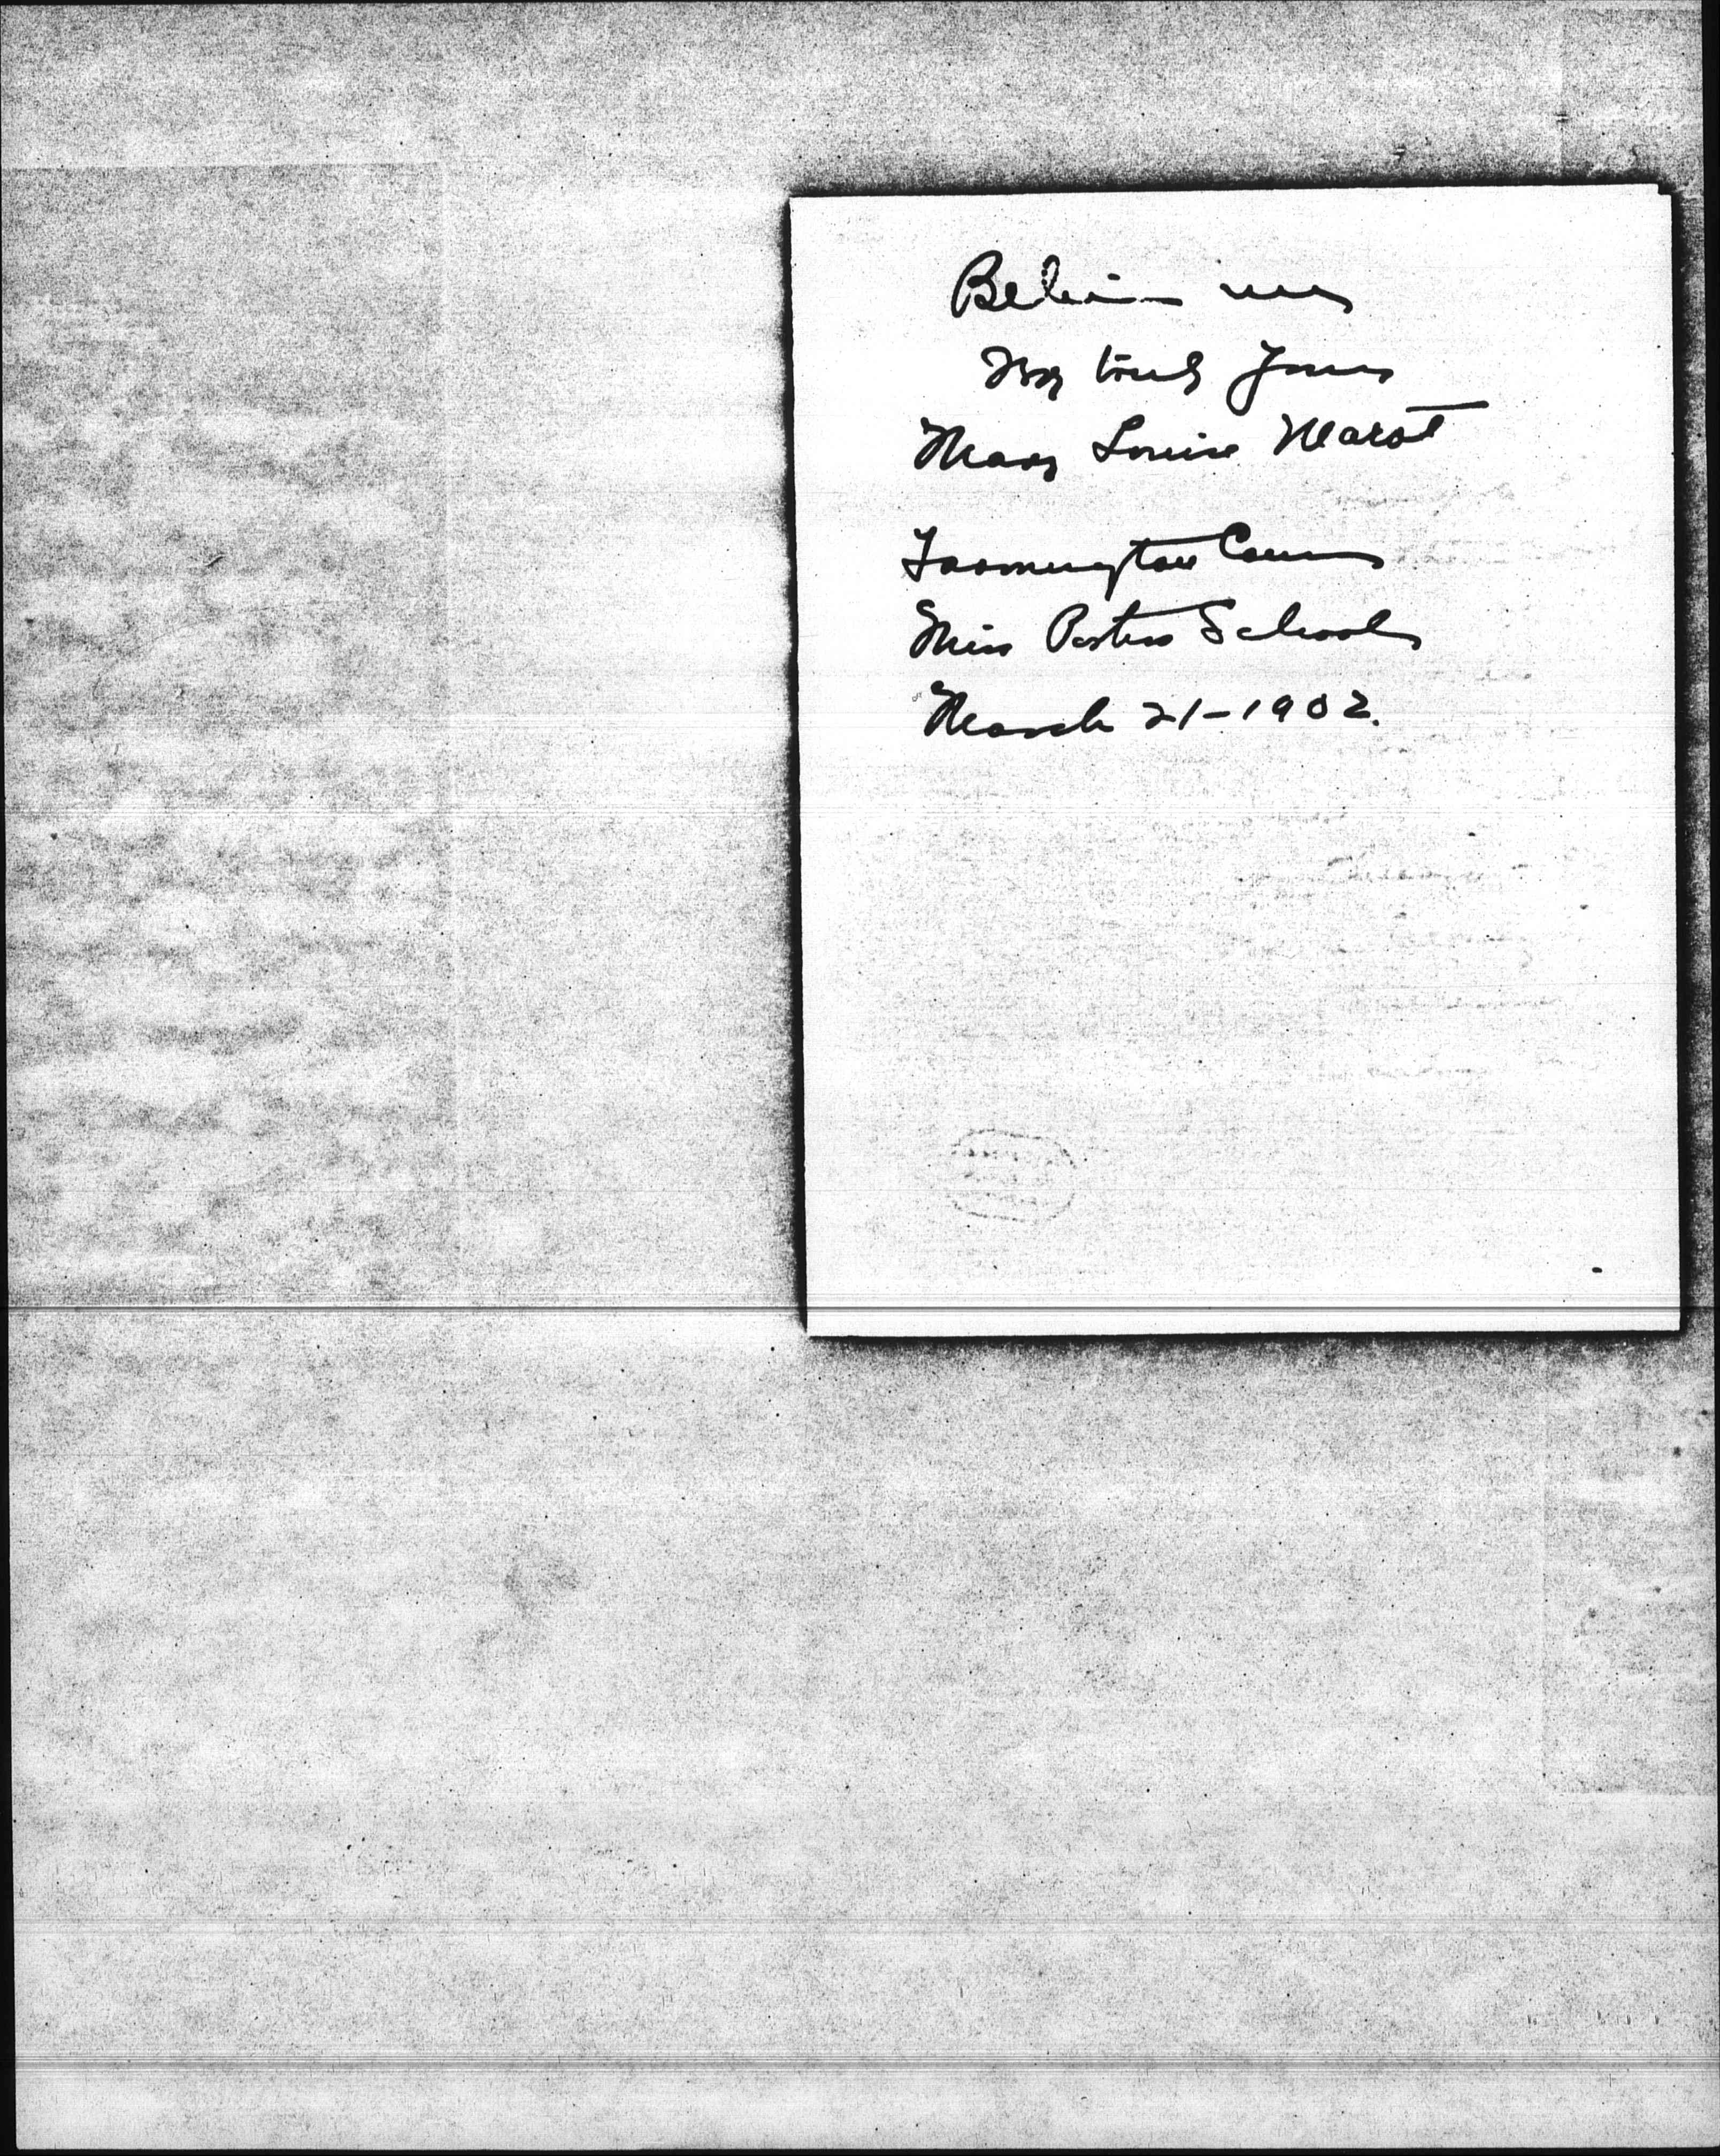 Believe me
Very truly yours
Mary Louise Marot
Farmington Conn
Miss Porters School
March 21-1902.